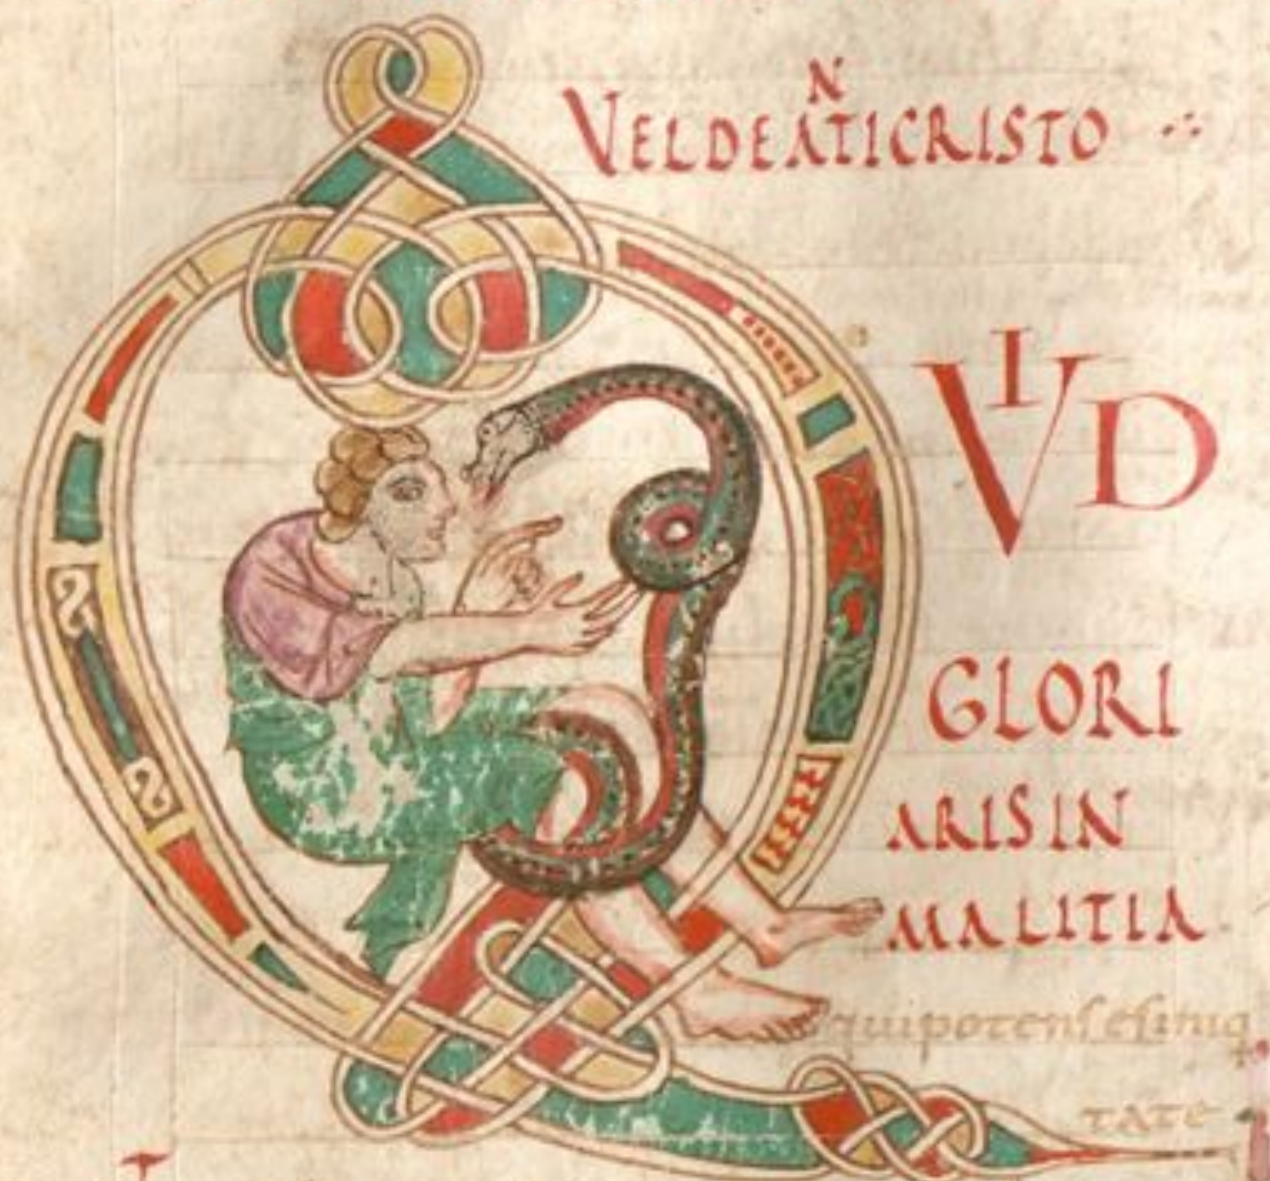 VELDEANTICRISTO
QUID
GLORI
ARISIN
MALITIA
quipotensesiniq
TATE